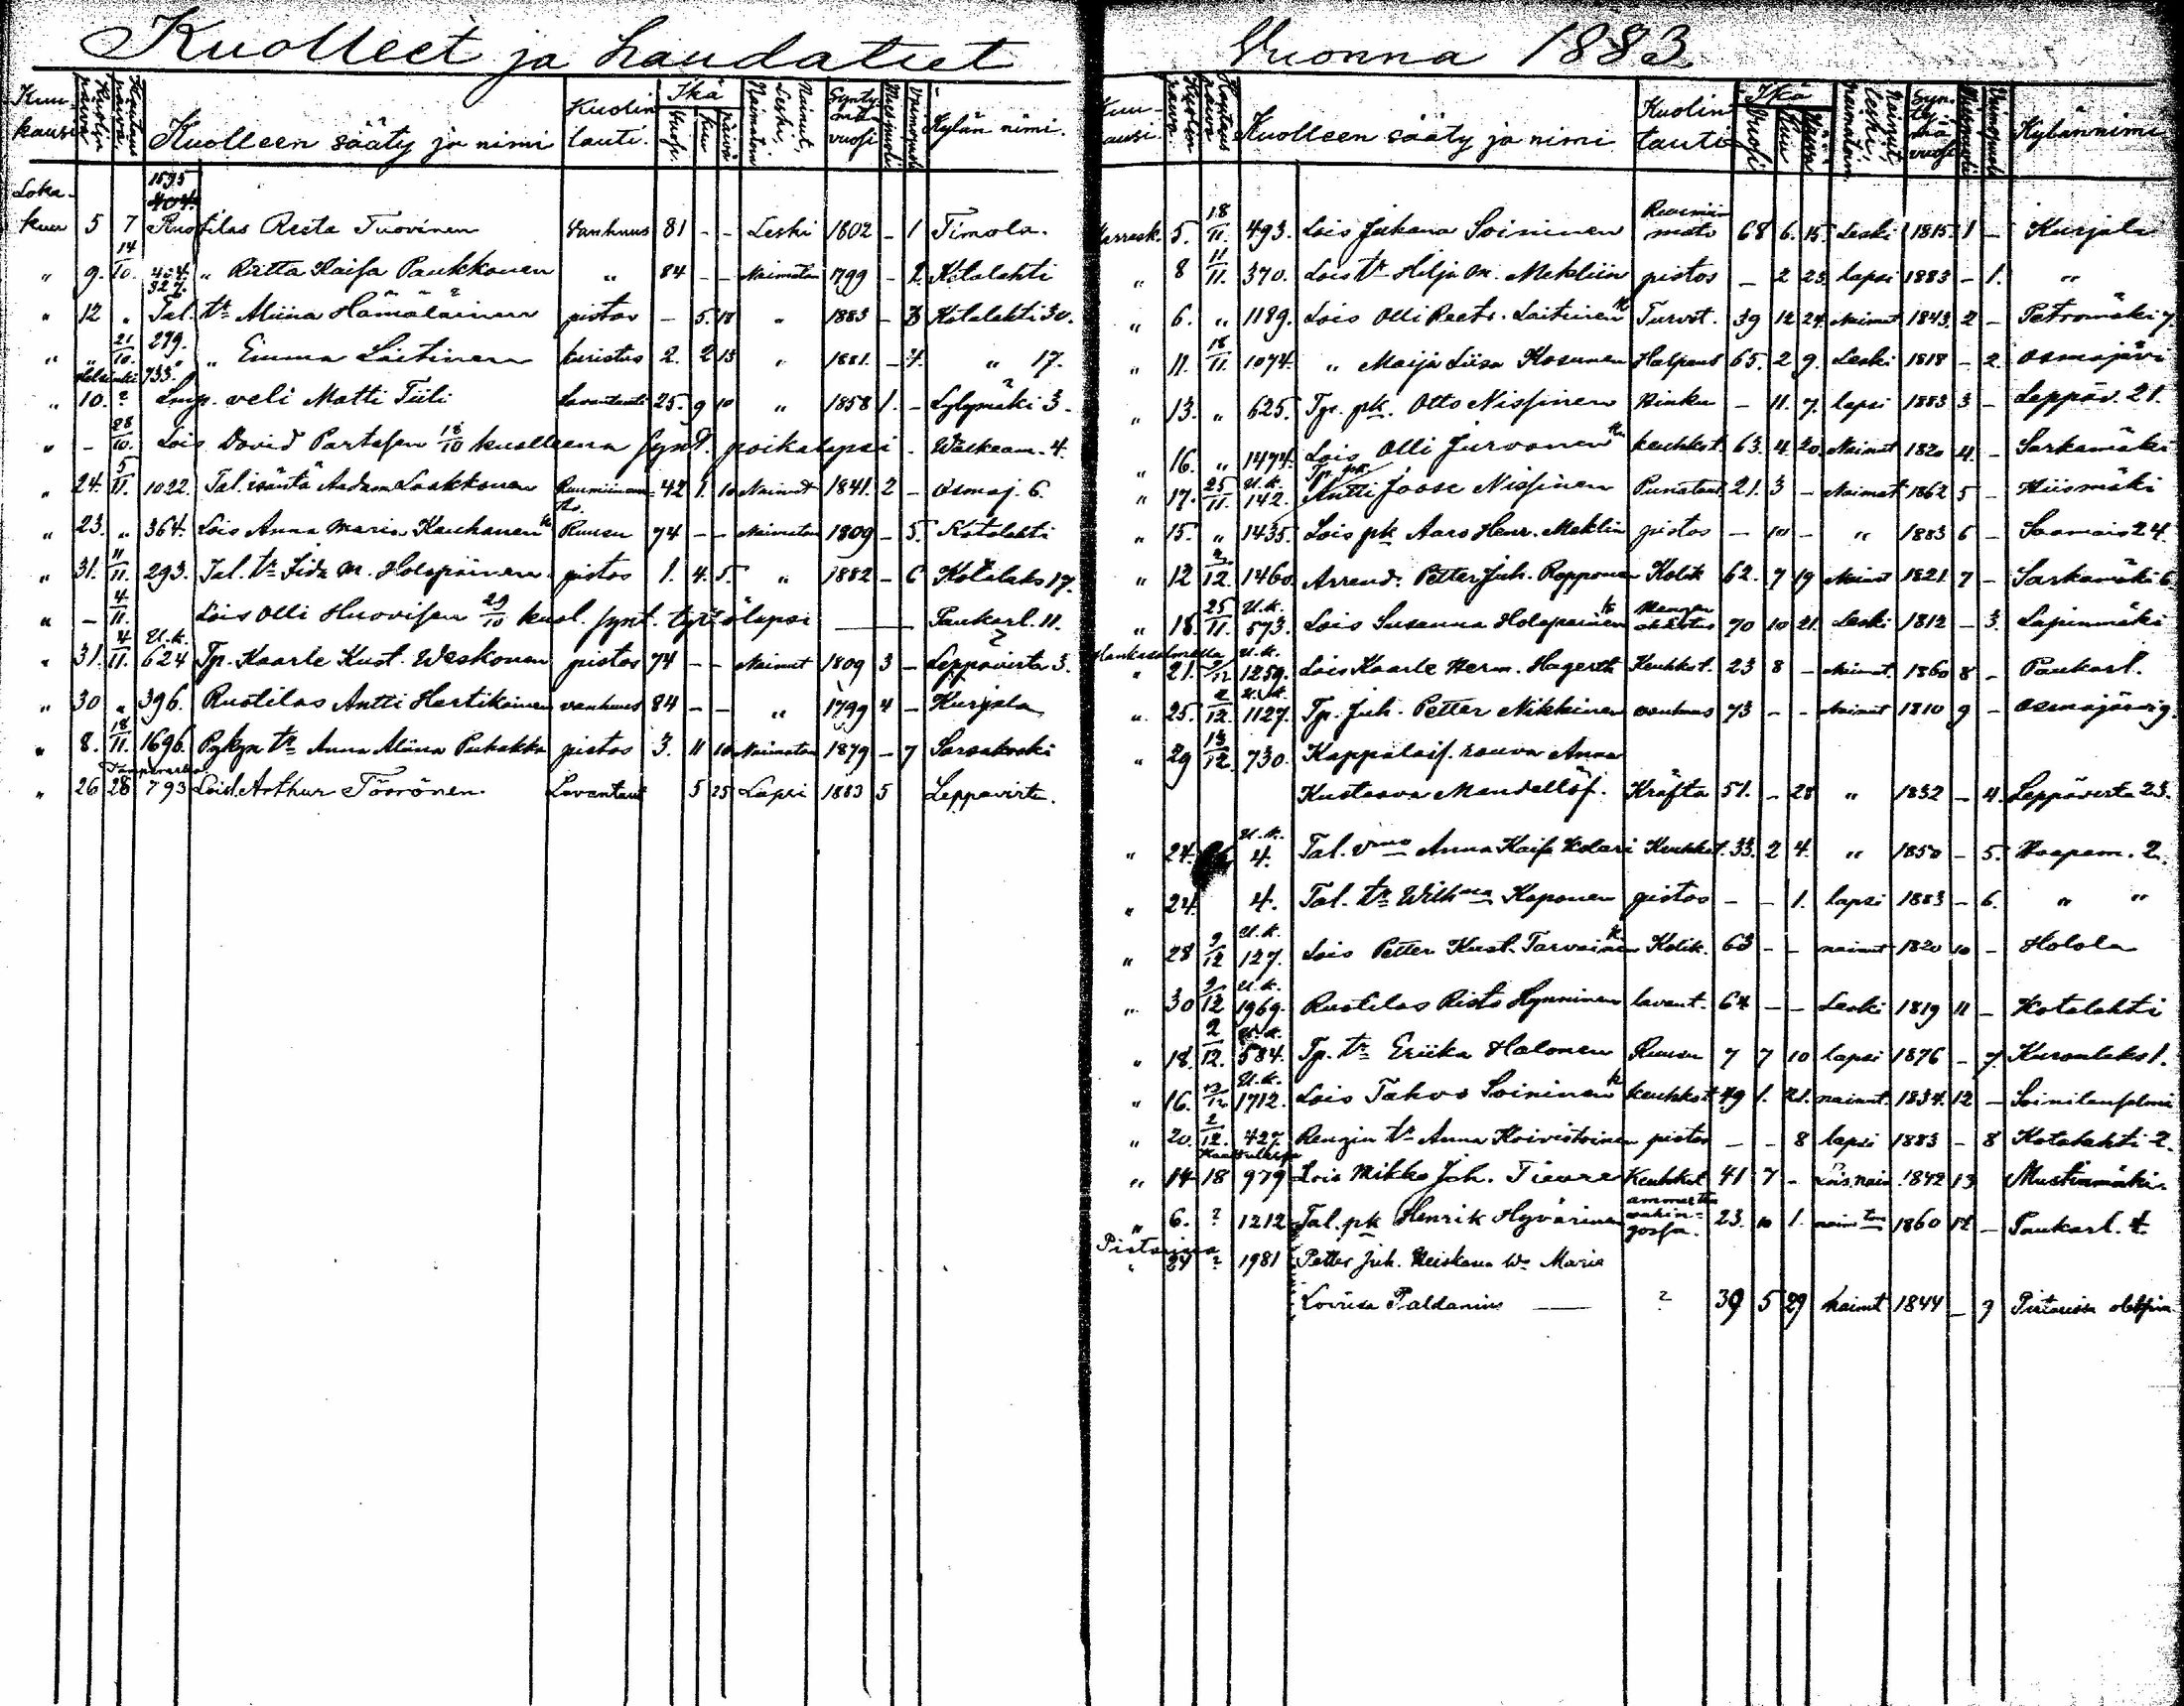 Kuolleet ja haudatut
Kuu-kausi Kuolin päivä Hautaus päivä Kuolleen sääty ja nimi Kuolin tauti. Ikä Vuosi kuu päivä Nainut, Leski, Naimatoin Synty-mä vuosi Miespuoli Vaimopuoli Kylän nimi.
Loka-kuu 5 7 1595 Ruotilas Reeta Tuovinen Vanhuus 81 - - Leski 1802 - 1 Timola.
" 9. 14/10. 404. " Riitta Kaisa Paukkonen " 84 - - Naimaton 1799 - 2. Kotalahti
" 12 " 327. Tal. tr Miina Hämäläinen pistos - 5. 18 " 1883 - 3 Kotalahti 30.
" " 21/10. 279. " Emma Laitinen kuristus 2. 2 13 " 1881. - 4. " 17.
" Helsinki 10. ? 733. Lmp. veli Matti Tiili Lavantauti 25. 9 10 " 1858 1. - Lylymäki 3.
" - 28/10. Lois David Partasen 18/10 kuolleena synt. poikalapsi - Wäskeäm. 4.
" 24. 5/11. 1022. Tal. isäntä Aadam Laakkonen 42 1. 10 Nainut 1841. 2 - Osmaj. 6.
" 23. " 364. Lois Anna Maria Kauhanen Ruusu 74 - - Naimaton 1809 - 5. Kotalahti
" 31. 11/11. 293. Tal. tr Iida M. Holopainen. pistos 1. 4. 5. " 1882 - 6 Kotalaks 17.
" - 4/11. Lois Olli Huovisen 29/10 kuol. synt. tyttölapsi Paukarl. 11.
" 31. 4/11. U.k. 624 Tp. Kaarle Kust. Weskonen pistos 74 - - Nainut 1809 3 - Leppävirta 3.
" 30 " 396. Ruotilas Antti Hartikainen vanhuus 84 - - " 1799 4 - Kurjala
" 8. 18/11. 1696. Pykyn tr Anna Miina Puhakka pistos 3. 11 10 Naimaton 1879 - 7 Sarsakoski
" 26 28 Tampereella 793 Lois. Arthur Törrönen. Lavantaut 5 25 Lapsi 1883 5 Leppävirta.
Vuonna 1883.
Kuu-kausi. Kuolin päivä Hautaus päivä Kuolleen sääty ja nimi Kuolin tauti Ikä Vuosi Kuu Päivä Nainut, Leski, Naimatoin Syn-ty-mä vuosi Miespuoli Vaimopuoli Kylän nimi
Marrask. 5. 18/11. 493. Lois Juhana Soininen 68 6. 15. Leski 1815. 1 - Kurjala
" 8 11/11. 370. Lois tr Hilja M. Mekliin pistos - 2 23. lapsi 1883 - 1. "
" 6. " 1189. Lois Olli Peetr. Laitinen Turvot. 39 12 24. Nainut 1843. 2 - Petromäki 7.
" 11. 18/11. 1074. " Maija Liisa Kosunen Halpaus 65. 2 9. Leski 1818 - 2. Osmajärvi
" 13. " 625. Tp. pk. Otto Nissinen Hinku - 11. 7. lapsi 1883 3 - Leppäv. 21.
" 16. " 1474. Lois Olli Jurvonen keuhkot. 63. 4. 20. Nainut 1820 4 - Sarkamäki
" 17. 25/11. U.k. 142. Tp. pk. Antti Joose Nissinen Punataut. 21. 3 - Naimat. 1862 5 - Hiismäki
" 15. " 1435. Lois pk Aaro Henr. Meklin pistos - 10 - " 1883 6 - Saamais 24.
" 12 2/12. 1460. Arrend. Petter Juh. Ropponen Kolik 62. 7 19 Nainut 1821. 7 - Sarkamäki 6.
" 18. 25/11. U.k. 573. Lois Susanna Holopainen Hengen ahdistus 70 10 21. Leski 1812 - 3. Lapinmäki
Hankasalmella " 21. 2/12 U.k. 1259. Lois Kaarle Herm. Hagerth Keuhkot. 23 8 - Naimat. 1860 8 - Paukarl.
" 25. 2/12. U.k. 1127. Tp. Juh. Petter Nikkinen vanhuus 73 - - Nainut 1810 9 - Osmajärvi 9.
" 29 13/12. 730. Kappalais. rouva Anna
Kustaava Mendellöf. Kräfta 51. - 28 " 1832 - 4. Leppävirta 23.
" 24. U.k. 4. Tal. vmo Anna Kaisa Kolari Keuhkot. 33. 2 4. " 1850 - 5. Haapam. 2.
" 24. 4. Tal. tr Wilhna Koponen pistos - - 1. lapsi 1883 - 6. " "
" 28 9/12 U.k. 127. Lois Petter Kust. Tarvainen Kolik. 63 - - nainut 1820 10 - Holola
" 30 9/12 U.k. 1969. Ruotilas Risto Hynninen lavant. 64 - - Leski 1819 11 - Kotalahti
" 18. 2/12. U.k. 584. Tp. tr Eriika Halonen Ruusu 7 7 10 lapsi 1876 - 7. Kuronlaks 1.
" 16. 2/12 U.k. 1712. Lois Tahvo Soininen keuhkot 49 1. 21. nainut. 1834. 12 - Soinilansalmi
" 20. 2/12. 427. Rengin tr Anna Koivistoinen pistos - - 8 lapsi 1883 - 8 Kotalahti 2.
" 14 18 979 Lois Mikko Joh. Tieure Keuhkot 41 7 - 1842 13 Mustinmäki.
" 6. ? 1212 Tal. pk Henrik Hyvärinen 23. 10 1. 1860 14 - Paukarl. 4.
Pietarissa " 24 ? 1981 Petter Juh. Heiskasen Wo Maria
Lovisa Paldanius ? 39 5 29 Nainut 1844 - 9 Pietarissa